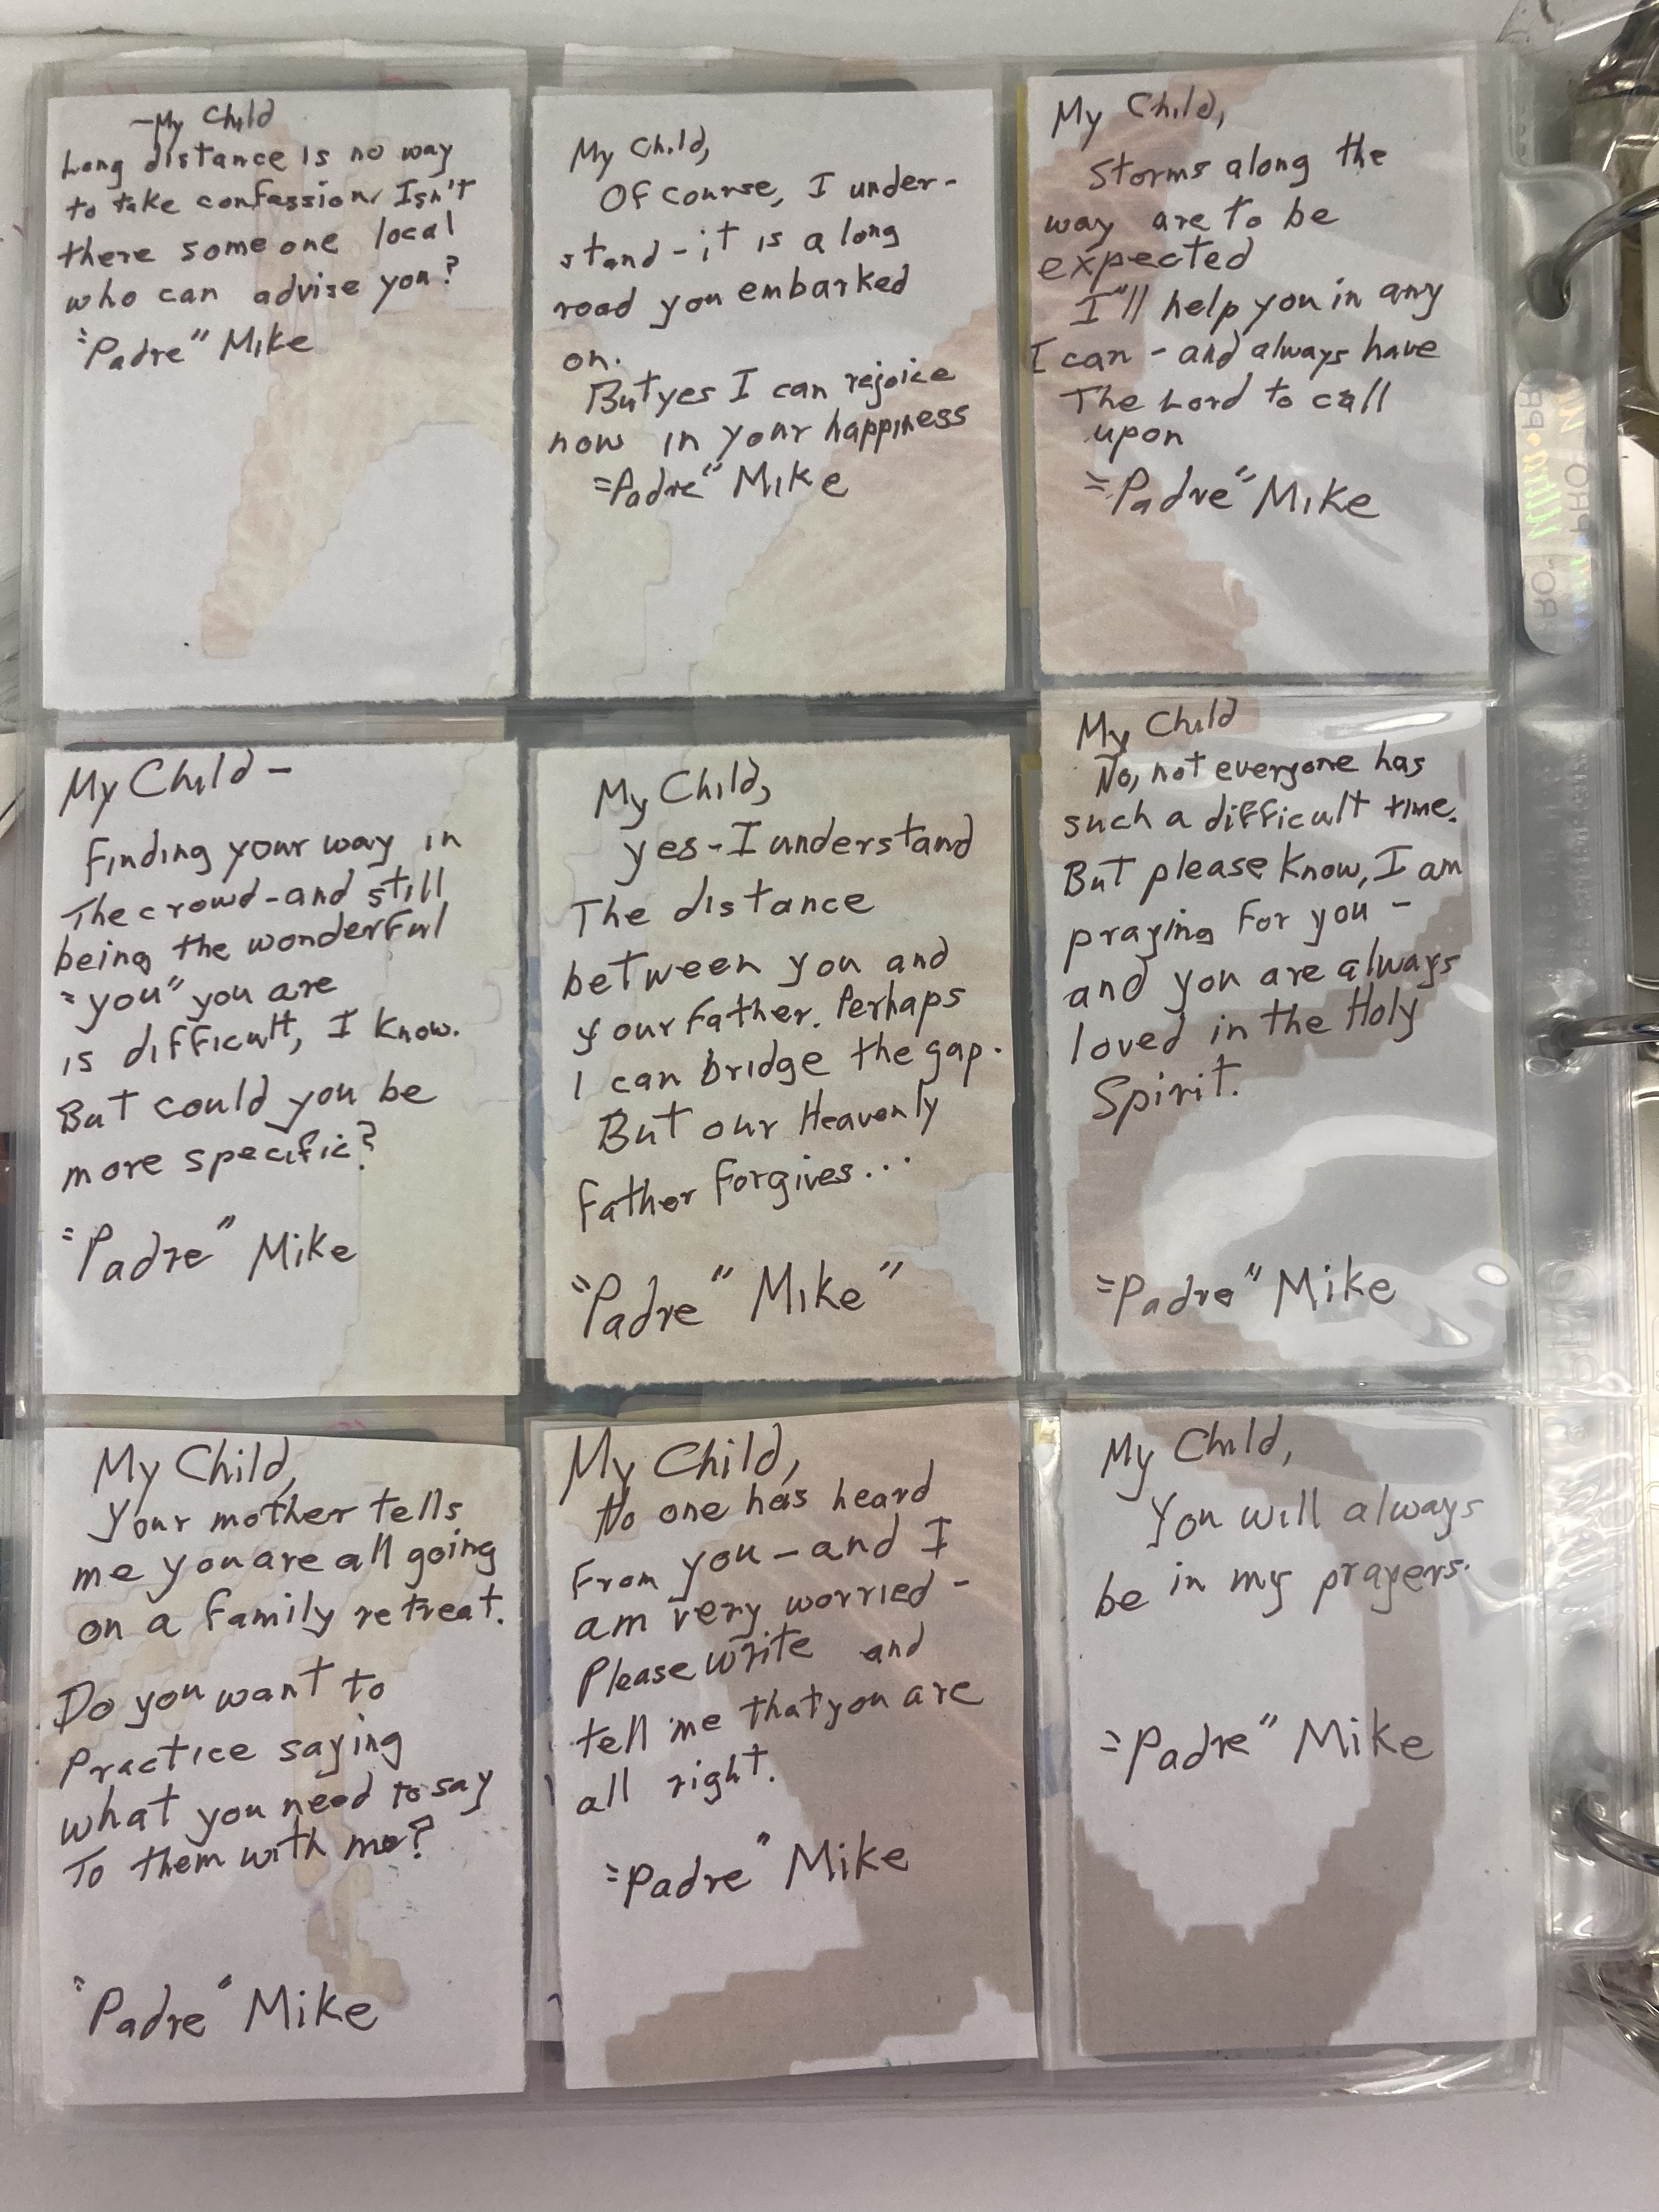 -My Child
Long distance is no way
to take confession. Isn't
there someone local
who can advise you?
"Padre" Mike
My Child,
Of course, I under-
stand - it is a long
road you embarked
on.
But yes I can rejoice
now in your happiness
"Padre" Mike
My Child,
Storms along the
way are to be
expected
I'll help you in any
I can - and always have
The Lord to call
upon
"Padre" Mike
My Child -
Finding your way in
The crowd - and still
being the wonderful
"you" you are
is difficult, I know.
But could you be
more specific?
"Padre" Mike
My Child,
yes - I understand
The distance
between you and
your Father. Perhaps
I can bridge the gap.
But our Heavenly
Father Forgives...
"Padre" Mike"
My Child
No, not everyone has
such a difficult time.
But please know, I am
praying for you -
and you are always
loved in the Holy
Spirit.
"Padre" Mike
My Child,
Your mother tells
me you are all going
on a family retreat.
Do you want to
Practice saying
what you need to say
To them with me?
"Padre" Mike
My Child,
No one has heard
From you - and I
am very worried -
Please write and
tell me that you are
all right.
"Padre" Mike
My Child,
You will always
be in my prayers.
"Padre" Mike